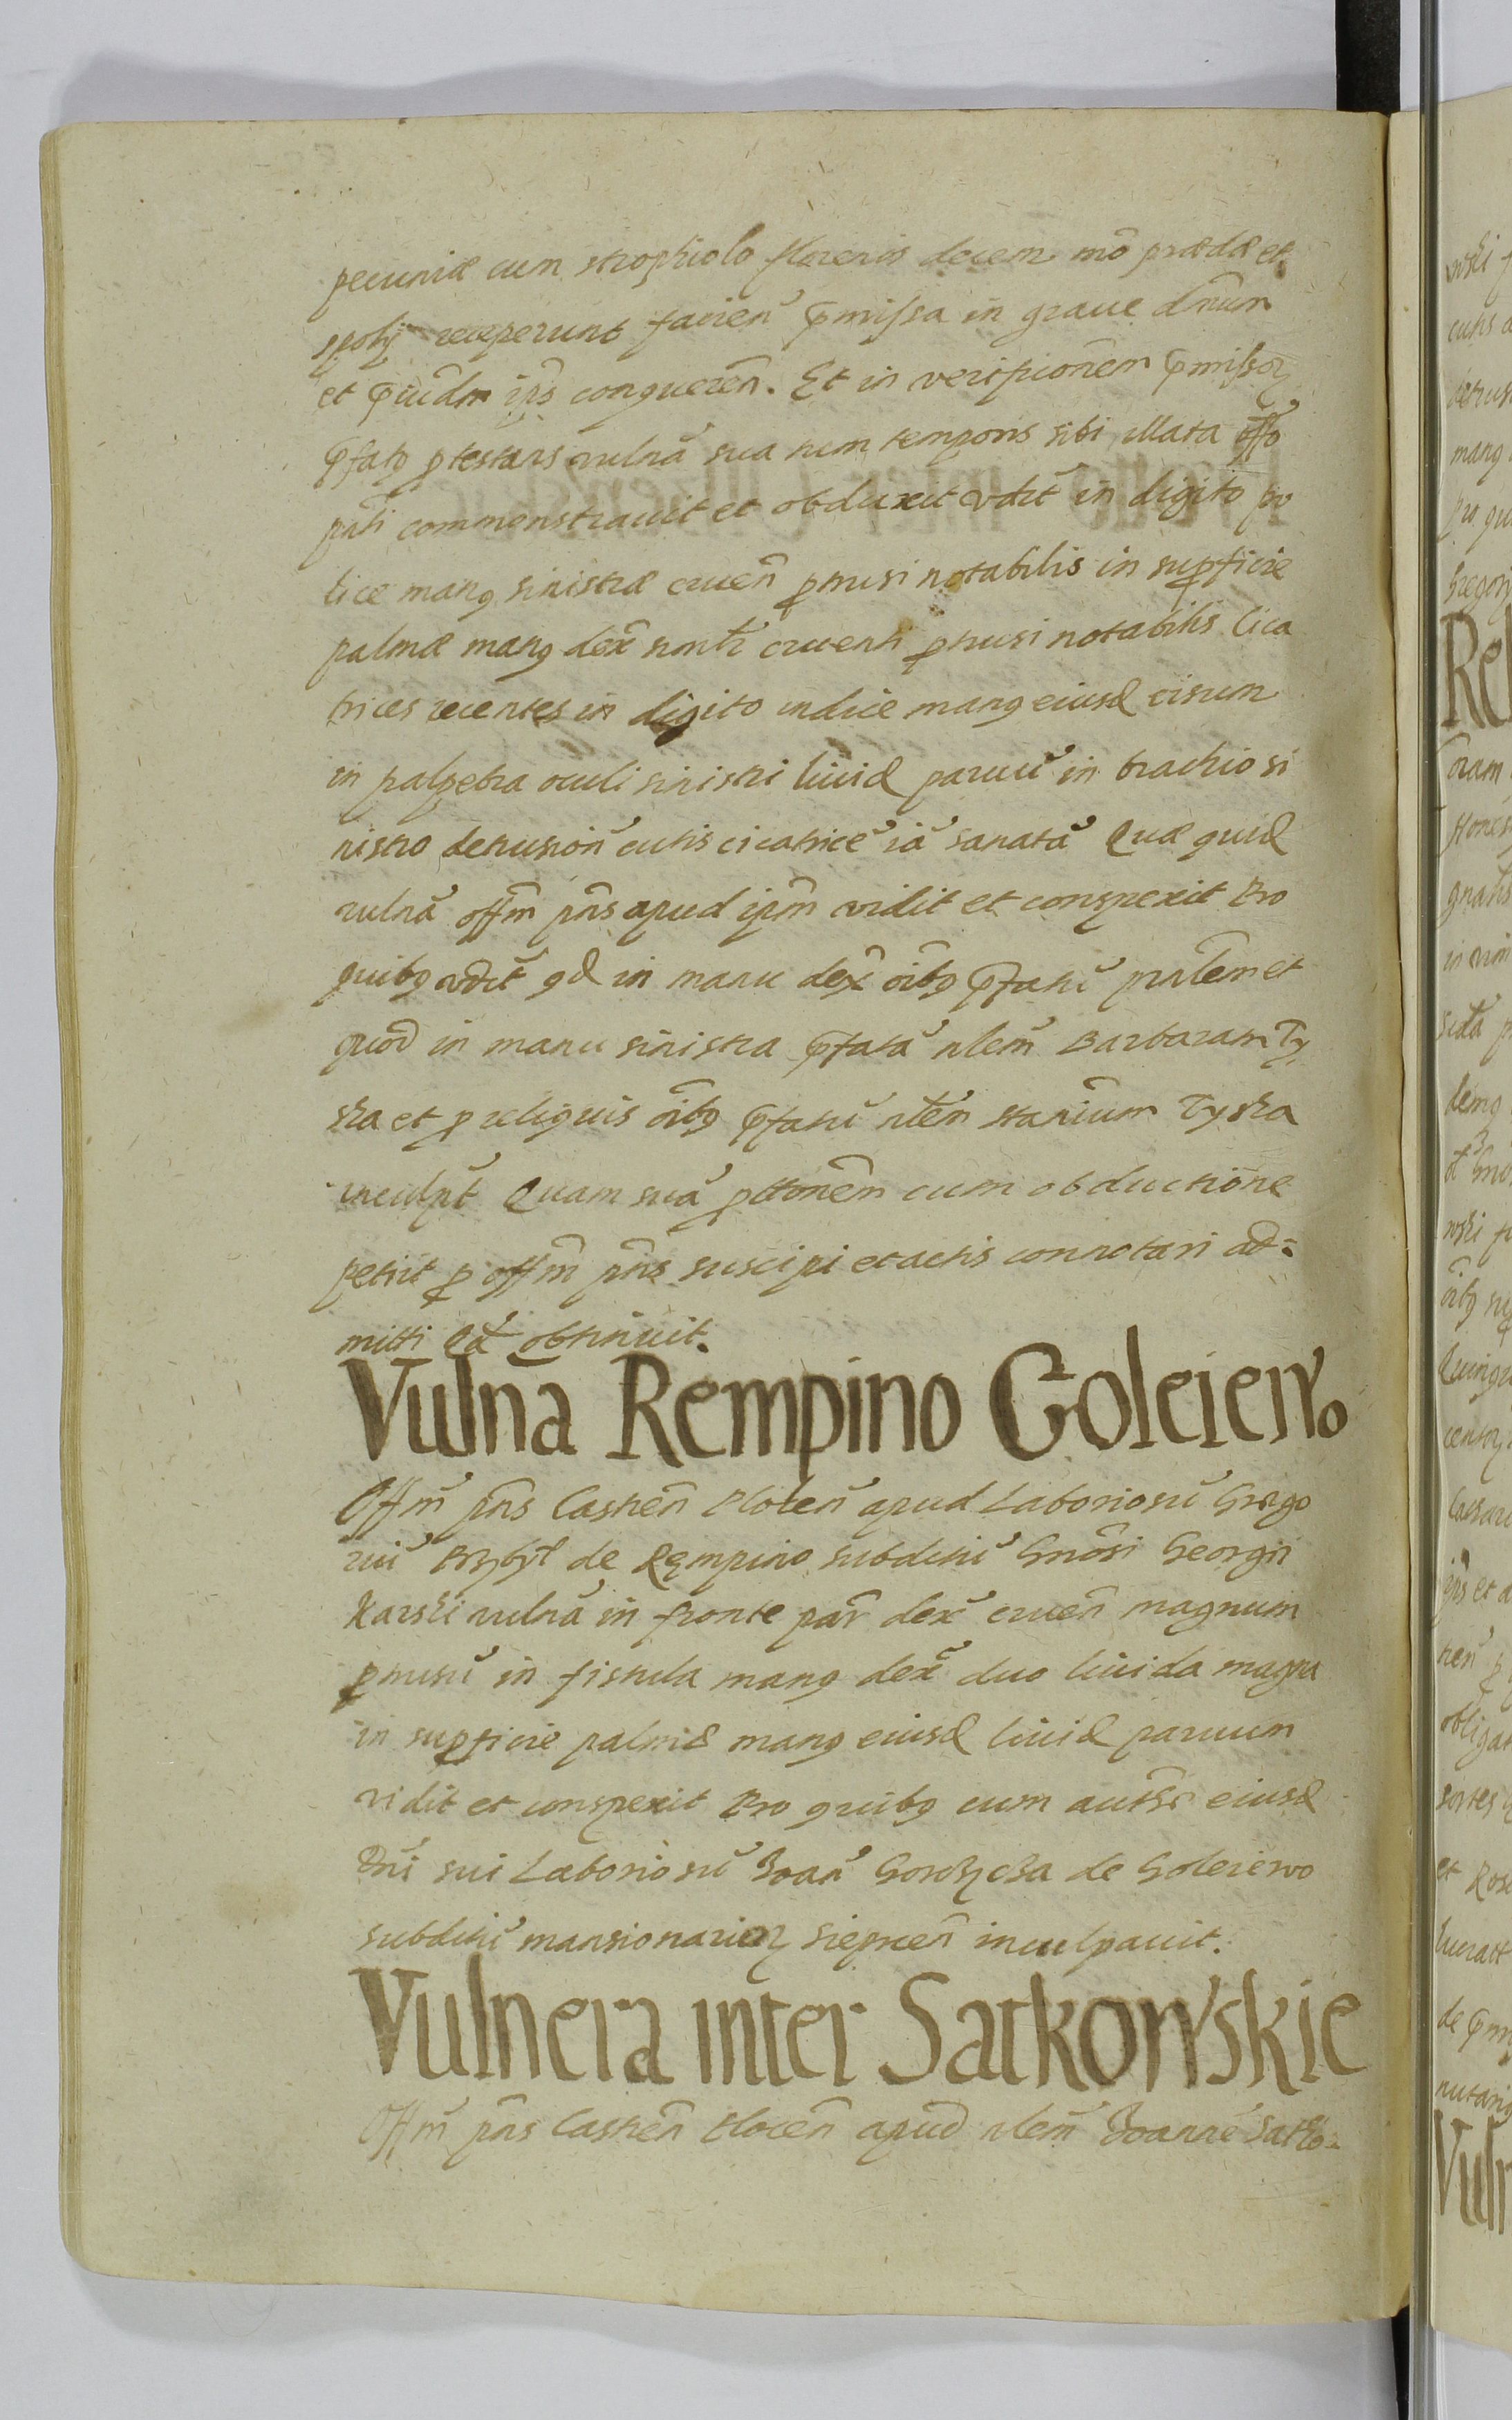 pecuniæ cum strophiolo florenis decem mō prædæ et
spolij receperunt facien̄ p̄missa in graue dn̄um
et p̄iudm ip̄s conqueren̄. Et in verifionem p̄missoꝝ
p̄fatꝰ ꝓtestans vulnā sua tum temporis sibi illata offo
pn̄ti commonstrauit et obduxit vdēt in digito po
lice manꝰ sinistræ cruen̄ ꝑtusi notabilis in suꝑficie
palmæ manꝰ dex̄ simlr cruenti ꝑtusi notabilis Cica
trices recentes in digito indice manꝰ eiusd cisum
in palpebra oculi sinistri liuid paruū in brachio si
nistro detusion̄ cutis cicatricē iā sanatā Quæ quid
vulnā offm̄ pn̄s apud ipm̄ vidit et conspexit Pro
quibꝰ vdēt qd in manu dex̄ oibꝰ p̄fatū prlēm et
quod in manu sinistra p̄fatā nlem̄ Barbaram Ty
ska et ꝓ reliquis oibꝰ p̄fatū nlēm stanium Tyska
inculpt Quam suā ꝓttonem̄ cum obductione
petiit ꝑ offm̄ pn̄s suscipi et actis connotari ad=
mitti Qd obtinuit.
Vulnā Rempino Goleiewo
Offm̄ pn̄s Castren̄ Plocen̄ apud Laboriosū Grego
riū Przybyl de Rempino subditū Gnosi Georgii
Karski vulnā in fronte par̄ dex̄ cruen̄ magnum
ꝑtusū in fistula manꝰ dex̄ duo liuida magna
in suꝑficie palmæ manꝰ eiusd liuid paruum
vidit et conspexit Pro quibꝰ cum authr̄ eiusd
Dn̄i sui Laboriosū Joan̄ de Goleiewo
subditū mansionarioꝝ Siepcen̄ inculpauit.
Vulnera inter Satkowskie
Offm̄ pn̄s Castren̄ Plocen̄ apud nlem̄ Joannē Satko-